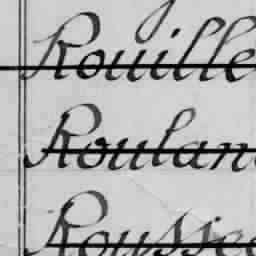 Rouille
Roulan
Rousse